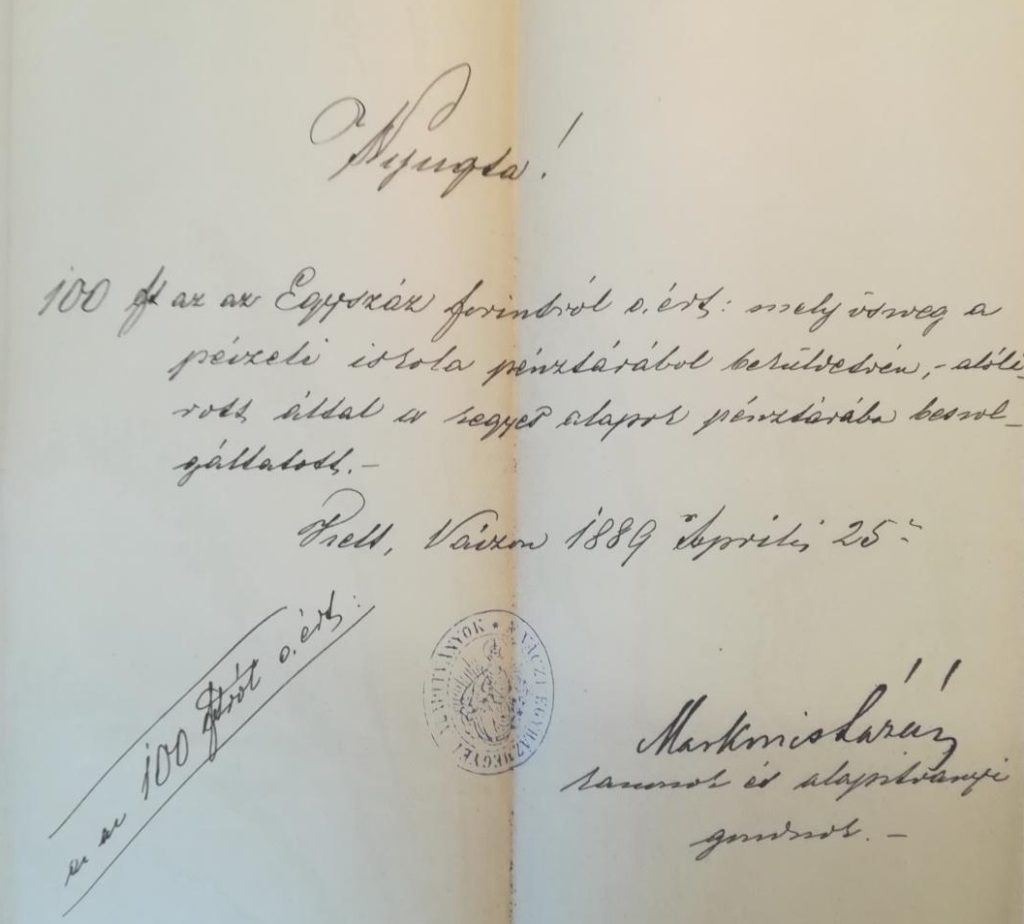 Nyugta!
100 ft az az Egyszáz forintról o. ért: mely öszveg a
péczeli iskola pénztárából beküldetvén, - alóli-
rott által a kegyes alapok pénztárába beszol-
gáltatott. -
Kelt, Váczon 1889 Április 25
az az 100 ftról o. ért:
VÁCZI EGYHÁZMEGYEI ALAPITVÁNYOK
Lázár
kanonok és alapitványi
gondnok. -